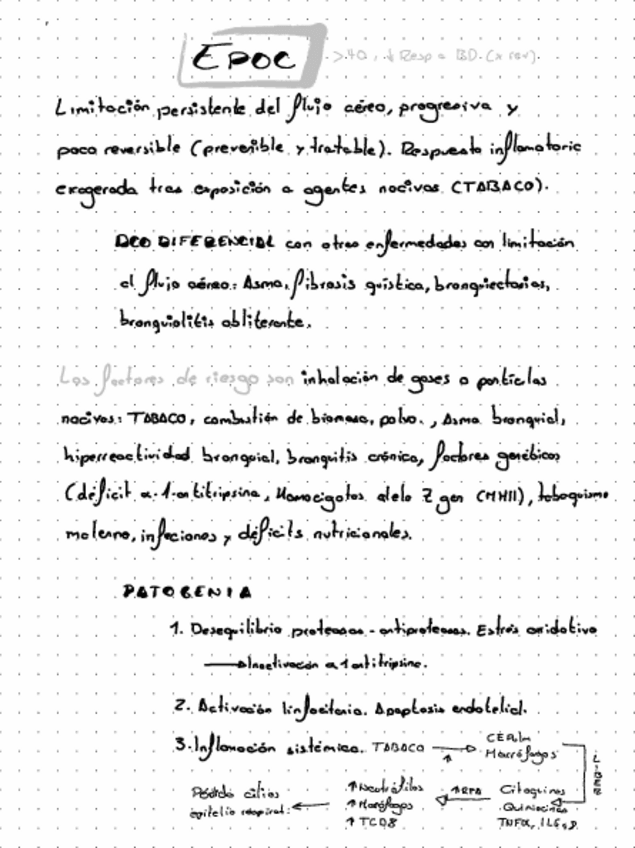 EPOC >40, ↓ Resp a BD. (x rev).
Limitación persistente del flujo aéreo, progresiva y
poco reversible (prevenible y tratable). Respuesta inflamatoria
exagerada tras exposición a agentes nocivos (TABACO).
DCO DIFERENCIAL con otras enfermedades con limitación
al flujo aéreo: Asma, fibrosis quística, bronquiectasias,
bronquiolitis obliterante.
Los factores de riesgo son inhalación de gases o partículas
nocivas: TABACO, combustión de biomasa, polvo., Asma bronquial,
hiperreactividad bronquial, bronquitis crónica, factores genéticos
(déficit α-1-antitripsina, Homocigotos alelo Z gen (MHII), tabaquismo
materno, infecciones y déficits nutricionales.
PATOGENIA
1. Desequilibrio proteasas - antiproteasas. Estrés oxidativo
→ Inactivación α1antitripsina.
2. Activación linfocitaria. Apoptosis endotelial.
3. Inflamación sistémica. TABACO → ↑ Macrófagos
LIBER
Citoquinas
Quimiocinas
TNFα, IL6,8
↑Neutrófilos
↑Macrófagos
↑TCD8
Pérdida cilios
epitelio respirat.